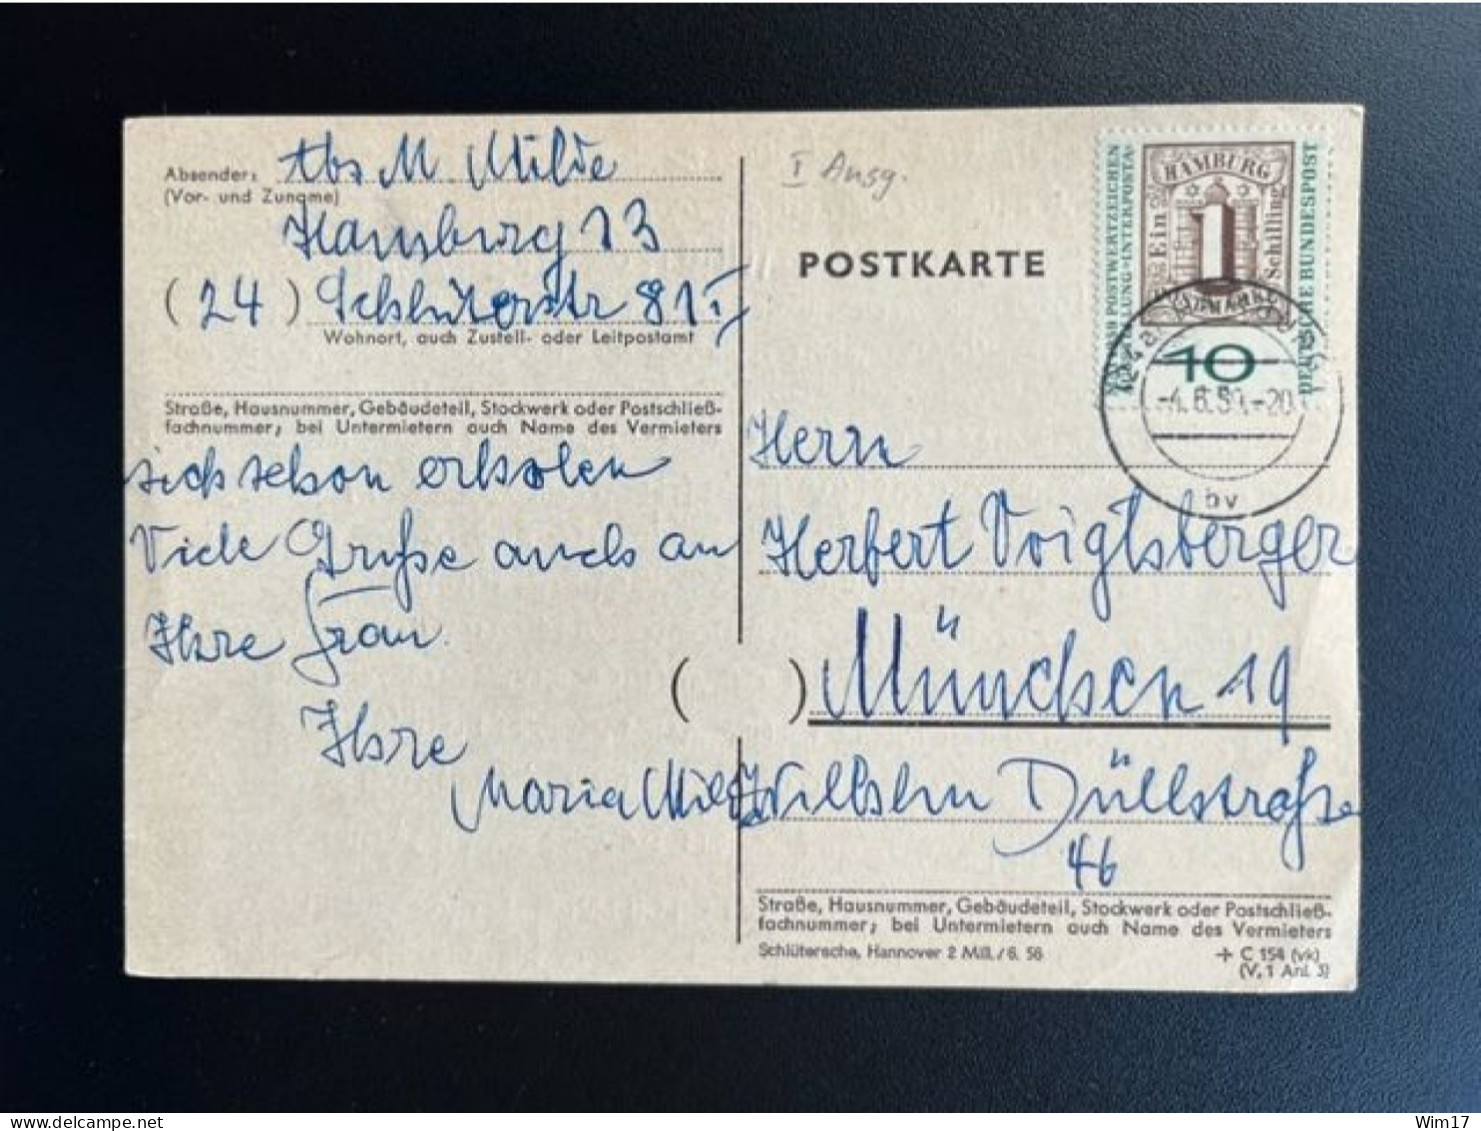 Absender: Abs M. Milde
(Vor- und Zuname)
Hamburg 13
(24) Schlüterstr 81 I
Wohnort, auch Zustell- oder Leitpostamt
Straße, Hausnummer, Gebäudeteil, Stockwerk oder Postschließ-
fachnummer; bei Untermietern auch Name des Vermieters
sich schon erholen
Viele Grüße auch an
Ihre Frau.
Ihre
Maria Milde
I Ausg.
POSTKARTE
HAMBURG
Ein
Schilling
POSTMARKE
1
10
DEUTSCHE BUNDESPOST
-4.6.59.-20
bv
Herrn
Herbert Voigtsberger
( ) München 19
Wilhelm Düllstraße
46
Straße, Hausnummer, Gebäudeteil, Stockwerk oder Postschließ-
fachnummer; bei Untermietern auch Name des Vermieters
Schlütersche, Hannover 2 Mill./6. 56
+ C 154 (vk)
(V, 1 Anl. 3)
Wim17